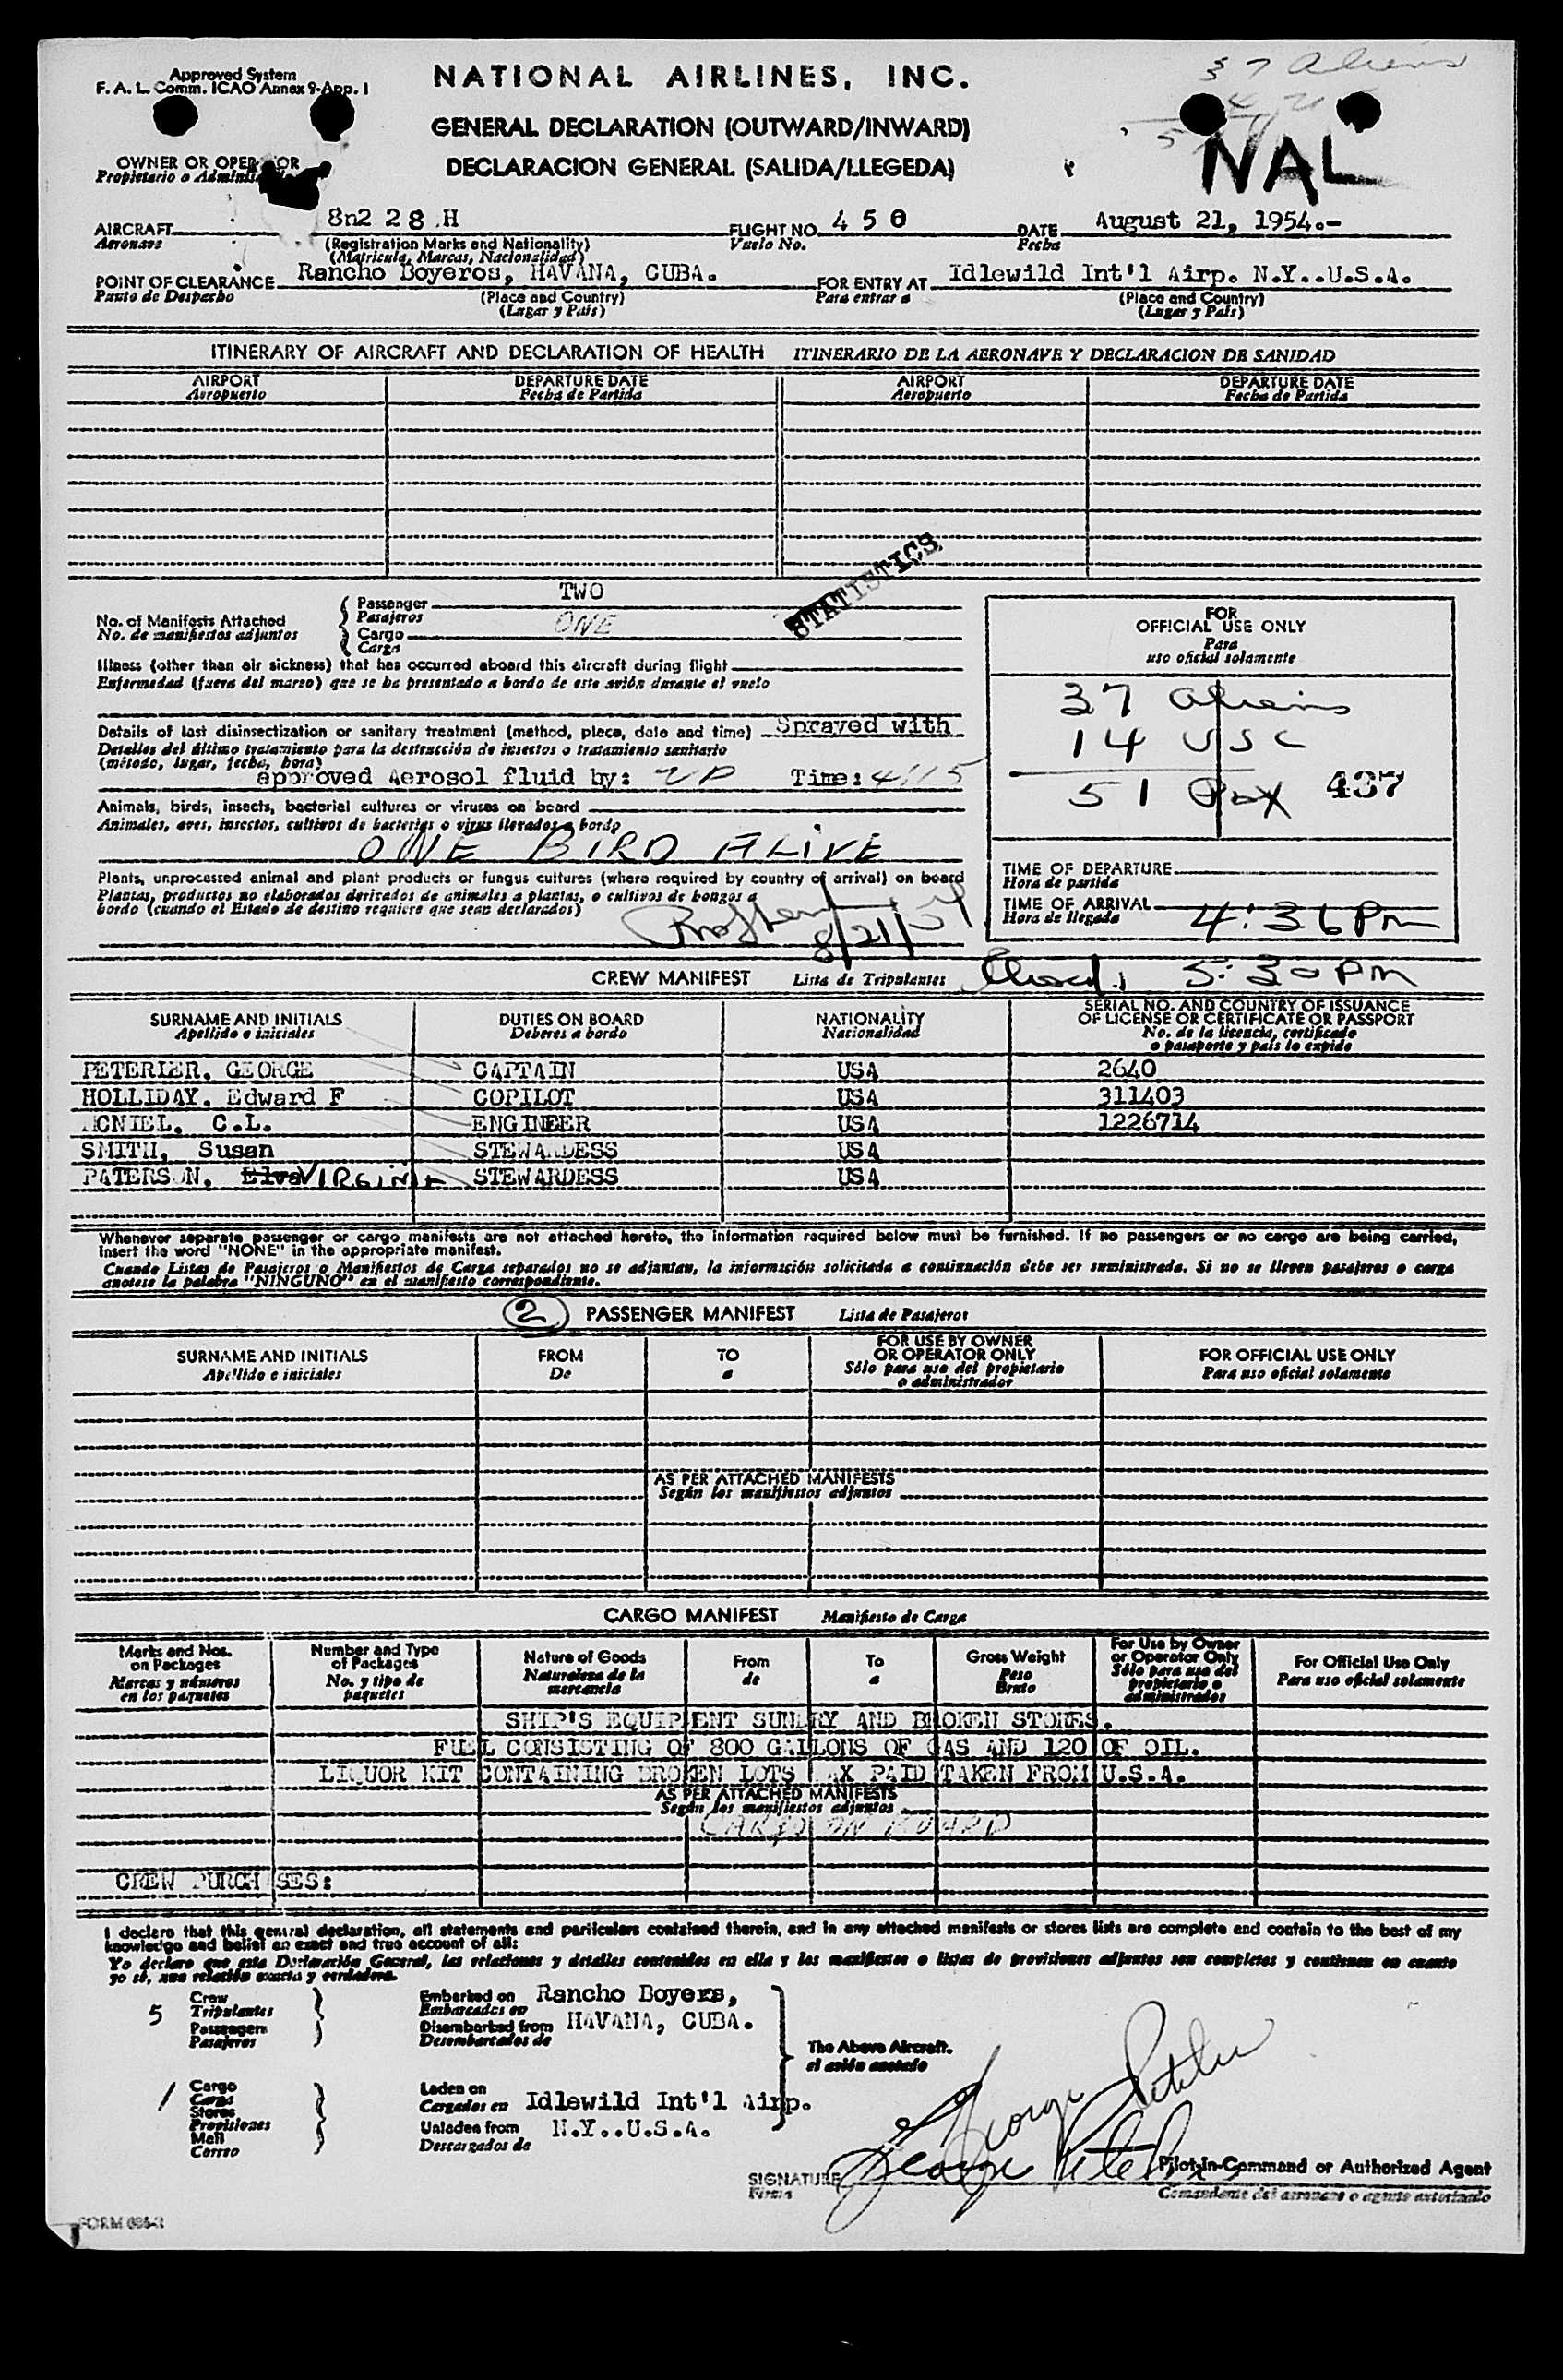 Approved System
F. A. L. Comm. ICAO Annex 9-App. I
NATIONAL AIRLINES, INC.
37 Aliens
GENERAL DECLARATION (OUTWARD/INWARD)
DECLARACION GENERAL (SALIDA/LLEGEDA)
NAL
OWNER OR OPERATOR
Propietario o Administ
AIRCRAFT 8n2 2 8 H FLIGHT NO. 4 5 0 DATE August 21, 1954.-
Aeronave (Registration Marks and Nationality) Vuelo No. Fecha
(Matricula, Marcas, Nacionalidad)
POINT OF CLEARANCE Rancho Boyeros, HAVANA, CUBA. FOR ENTRY AT Idlewild Int'l Airp. N.Y..U.S.A.
Punto de Despacho (Place and Country) Para entrar a (Place and Country)
(Lugar y País) (Lugar y País)
ITINERARY OF AIRCRAFT AND DECLARATION OF HEALTH ITINERARIO DE LA AERONAVE Y DECLARACION DE SANIDAD
AIRPORT DEPARTURE DATE AIRPORT DEPARTURE DATE
Aeropuerto Fecha de Partida Aeropuerto Fecha de Partida
STATISTICS
No. of Manifests Attached Passenger TWO
No. de manifiestos adjuntos Pasajeros
Cargo ONE
Carga
Illness (other than air sickness) that has occurred aboard this aircraft during flight
Enfermedad (fuera del mareo) que se ha presentado a bordo de este avión durante el vuelo
Details of last disinsectization or sanitary treatment (method, place, date and time) Sprayed with
Detalles del último tratamiento para la destrucción de insectos o tratamiento sanitario
(método, lugar, fecha, hora)
approved Aerosol fluid by: VP Time: 4:15
Animals, birds, insects, bacterial cultures or viruses on board
Animales, aves, insectos, cultivos de bacterias o virus llevados a bordo
ONE BIRD ALIVE
Plants, unprocessed animal and plant products or fungus cultures (where required by country of arrival) on board
Plantas, productos no elaborados derivados de animales a plantas, o cultivos de hongos a
bordo (cuando el Estado de destino requiere que sean declarados)
8/21/54
FOR
OFFICIAL USE ONLY
Para
uso oficial solamente
37 Aliens
14 USC
51 Pax 437
TIME OF DEPARTURE
Hora de partida
TIME OF ARRIVAL 4:36 Pm
Hora de llegada
CREW MANIFEST Lista de Tripulantes Closed 5:30 Pm
SURNAME AND INITIALS DUTIES ON BOARD NATIONALITY SERIAL NO. AND COUNTRY OF ISSUANCE
OF LICENSE OR CERTIFICATE OR PASSPORT
Apellido e iniciales Deberes a bordo Nacionalidad No. de la licencia, certificado
o pasaporte y país lo expide
PETERLER, GEORGE CAPTAIN USA 2640
HOLLIDAY, Edward F COPILOT USA 311403
MCNIEL, C.L. ENGINEER USA 1226714
SMITH, Susan STEWARDESS USA
PATERSON, Elva VIRGINIA STEWARDESS USA
Whenever separate passenger or cargo manifests are not attached hereto, the information required below must be furnished. If no passengers or no cargo are being carried,
insert the word "NONE" in the appropriate manifest.
Cuando Listas de Pasajeros o Manifiestos de Carga separados no se adjuntan, la información solicitada a continuación debe ser suministrada. Si no se lleven pasajeros o carga
anotese la palabra "NINGUNO" en el manifiesto correspondiente.
2 PASSENGER MANIFEST Lista de Pasajeros
SURNAME AND INITIALS FROM TO FOR USE BY OWNER
OR OPERATOR ONLY FOR OFFICIAL USE ONLY
Apellido e iniciales De a Sólo para uso del propietario
o administrador Para uso oficial solamente
AS PER ATTACHED MANIFESTS
Según los manifiestos adjuntos
CARGO MANIFEST Manifiesto de Carga
Marks and Nos.
on Packages
Marcas y números
en los paquetes
Number and Type
of Packages
No. y tipo de
paquetes
Nature of Goods
Naturaleza de la
mercancia
From
de
To
a
Gross Weight
Peso
Bruto
For Use by Owner
or Operator Only
Sólo para uso del
propietario o
administrador
For Official Use Only
Para uso oficial solamente
SHIP'S EQUIPMENT SUNDRY AND BROKEN STORES.
FUEL CONSISTING OF 800 GALLONS OF GAS AND 120 OF OIL.
LIQUOR KIT CONTAINING BROKEN LOTS TAX PAID TAKEN FROM U.S.A.
AS PER ATTACHED MANIFESTS
Según los manifiestos adjuntos
CARGO ON BOARD
CREW PURCHASES:
I declare that this general declaration, all statements and particulars contained therein, and in any attached manifests or stores lists are complete and contain to the best of my
knowledge and belief an exact and true account of all:
Yo declaro que esta Declaración General, las relaciones y detalles contenidos en ella y los manifiestos o listas de provisiones adjuntos son completos y contienen en cuanto
yo sé, una relación exacta y verdadera.
5 Crew
Tripulantes
Passengers
Pasajeros
Embarked on Rancho Boyers,
Embarcados en
Disembarked from HAVANA, CUBA.
Desembarcados de
The Above Aircraft.
el avión anotado
1 Cargo
Carga
Stores
Provisiones
Mail
Correo
Laden on
Cargados en Idlewild Int'l Airp.
Unladen from N.Y..U.S.A.
Descargados de
SIGNATURE Pilot-in-Command or Authorized Agent
Firma Comandante del aeronave o agente autorizado